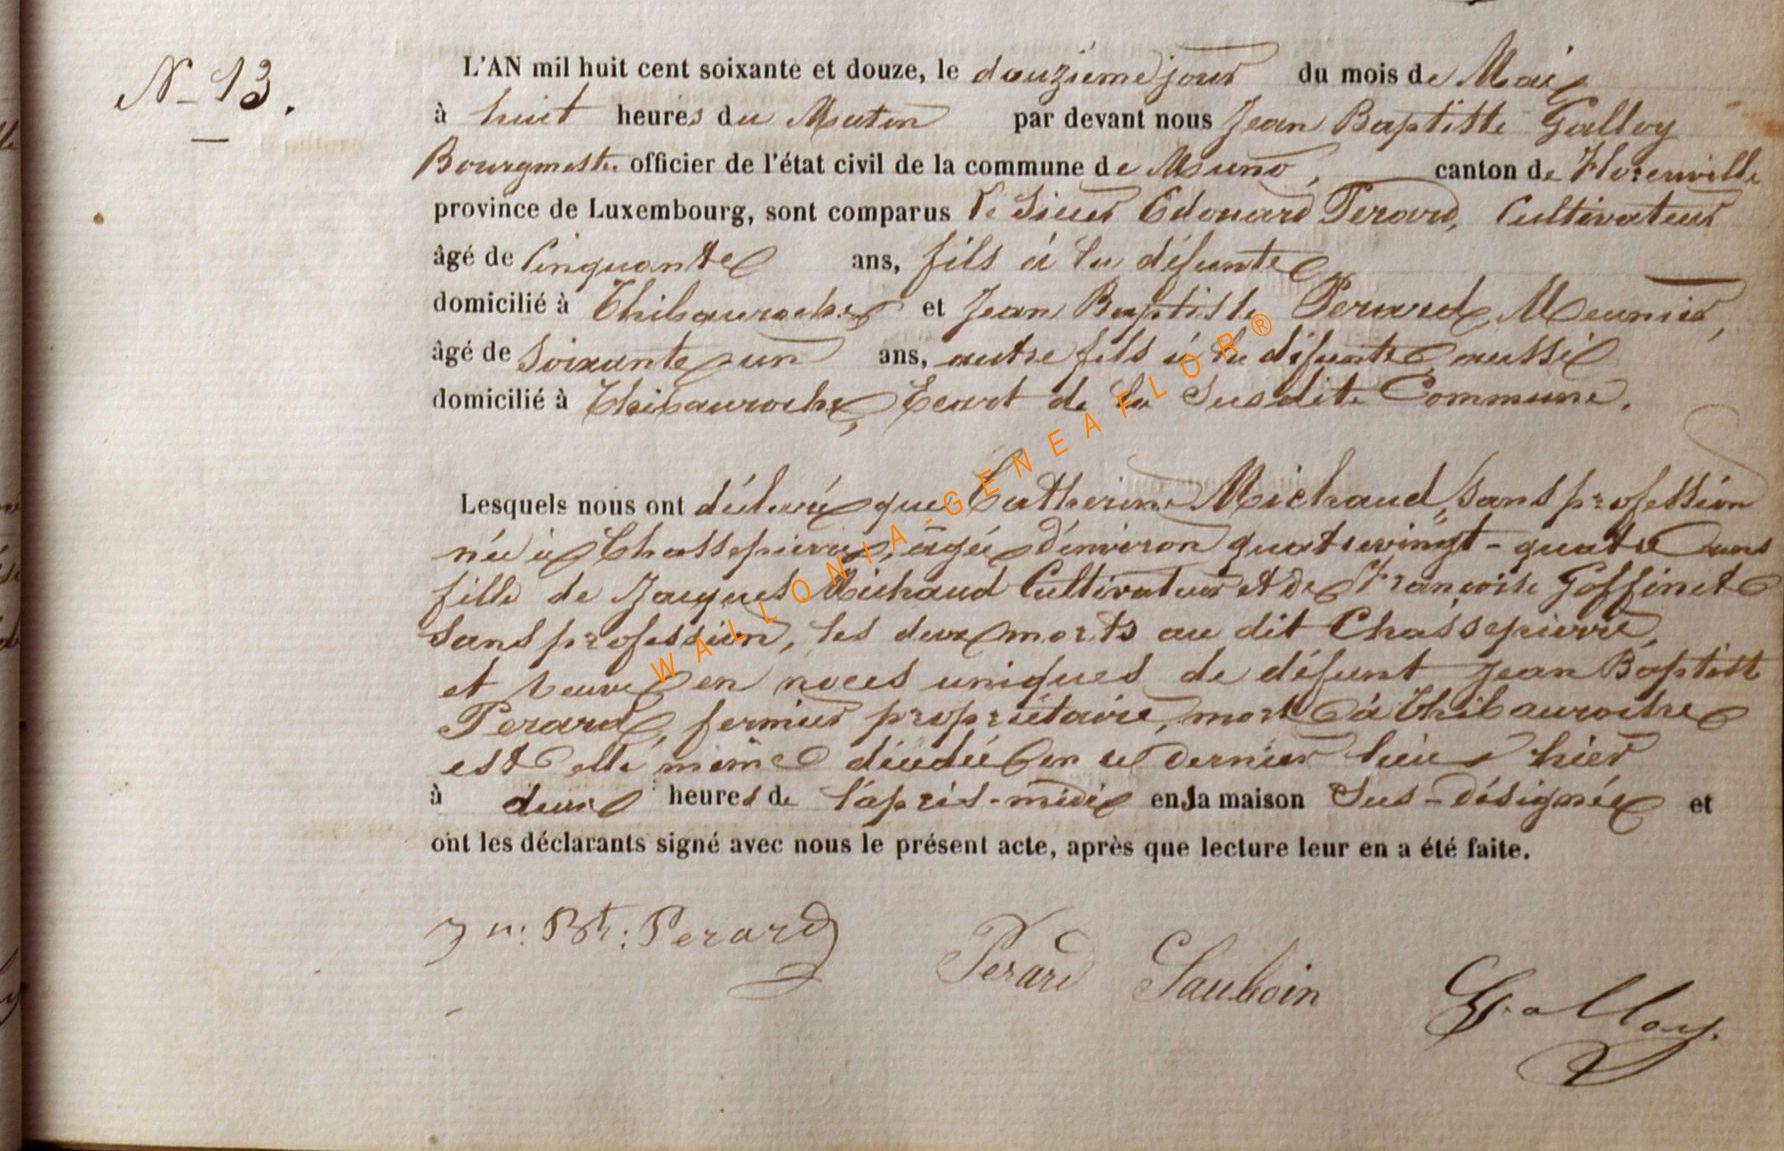 N° 13.
L'AN mil huit cent soixante et douze, le douzième jour du mois de Mai
à huit heures du Matin par devant nous Jean Baptiste Galloy
Bourgmestre officier de l'état civil de la commune de Muno, canton de Florenville
province de Luxembourg, sont comparus le Sieur Edouard Perard, Cultivateur
âgé de Cinquante ans, fils à la défunte
domicilié à Thibauroche et Jean Baptiste Perard Meunier,
âgé de Soixante un ans, autre fils à la défunte aussi
domicilié à Thibauroche, Ecart de la Susdite Commune.
Lesquels nous ont déclaré que Catherine Michaud, sans profession
née à Chassepierre, agée d'environ quatrevingt-quatre ans
fille de Jacques Michaud Cultivateur et de Françoise Goffinet
sans profession, les deux morts au dit Chassepierre,
et veuve en noces uniques de défunt Jean Baptiste
Perard, fermier propriétaire, mort à Thibauroche
est elle même décédée en ce dernier lieu hier
à deux heures de l'après-midi en la maison Sus-désignée et
ont les déclarants signé avec nous le présent acte, après que lecture leur en a été faite.
Jn: Bte: Perard
Perard Sauboin
Galloy.
WALLONIA-GENEAFLOR®